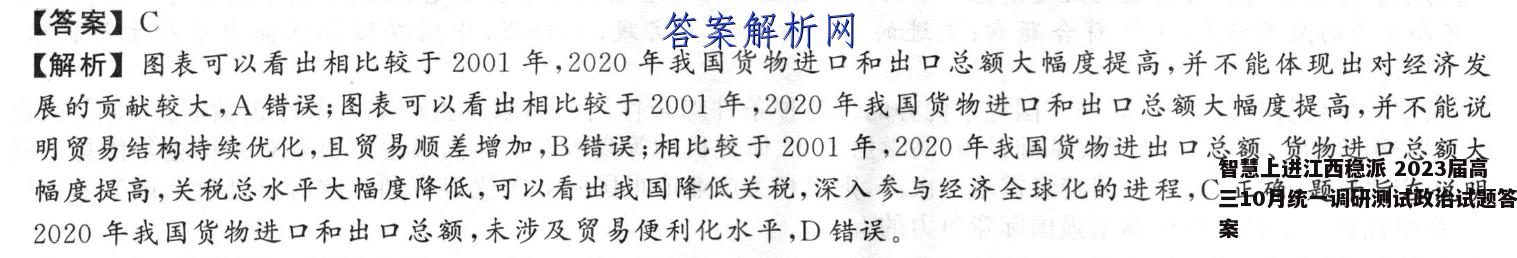 【答案】C
答案解析网
【解析】图表可以看出相比较于 2001 年,2020 年我国货物进口和出口总额大幅度提高,并不能体现出对经济发
展的贡献较大,A 错误;图表可以看出相比较于 2001 年,2020 年我国货物进口和出口总额大幅度提高,并不能说
明贸易结构持续优化,且贸易顺差增加,B 错误;相比较于 2001 年,2020 年我国货物进出口总额、货物进口总额大
幅度提高,关税总水平大幅度降低,可以看出我国降低关税,深入参与经济全球化的进程,C
2020 年我国货物进口和出口总额,未涉及贸易便利化水平,D 错误。
智慧上进江西稳派 2023届高
三10月统一调研测试政治试题答
案